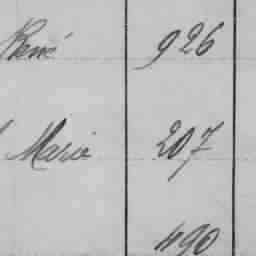 René 926
Marie 207
490